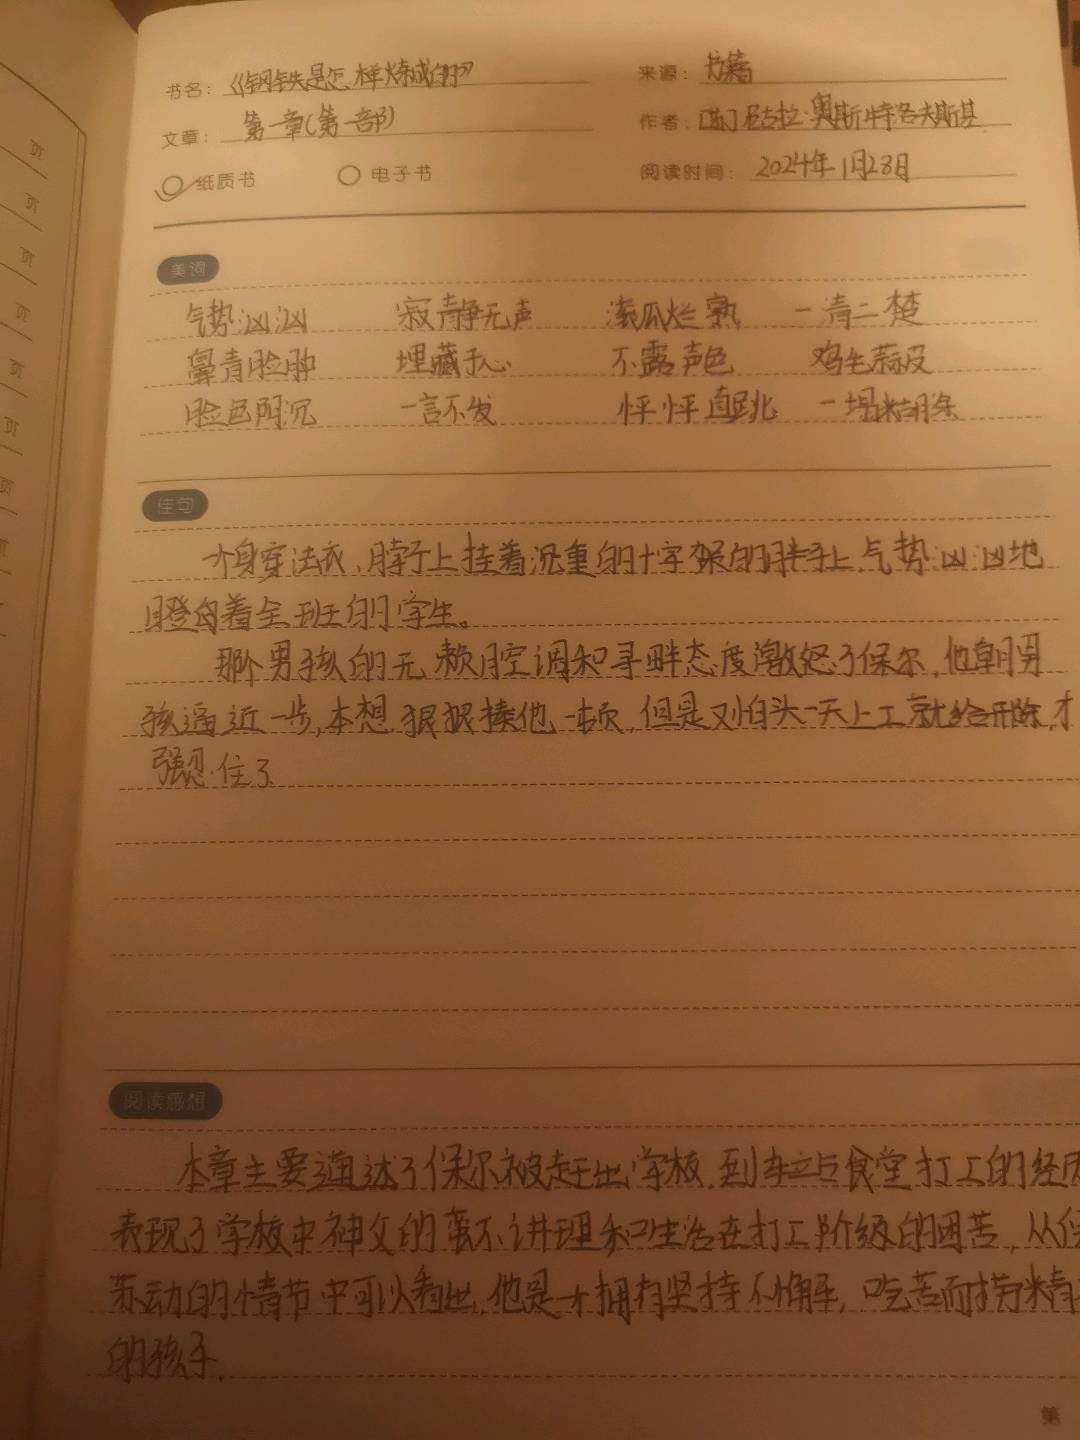 书名：《钢铁是怎样炼成的》 来源：书籍
文章：第一章(第一部) 作者：[苏]尼古拉·奥斯特洛夫斯基
纸质书 电子书 阅读时间：2024年1月28日
美词
气势汹汹 寂静无声 滚瓜烂熟 一清二楚
鼻青脸肿 埋藏于心 不露声色 鸡毛蒜皮
脸色阴沉 一言不发 怦怦直跳 一塌糊涂
佳句
一个身穿法衣、脖子上挂着沉重的十字架的胖子上 气势汹汹地
瞪着全班的学生。
那个男孩的无赖腔调和寻衅态度激怒了保尔，他朝男
孩逼近一步，本想狠狠揍他一顿，但是又怕头一天上工就给开除，才
强忍住了
阅读感想
本章主要讲述了保尔被赶出学校，到车站食堂打工的经历
表现了学校中神父的蛮不讲理和生活在打工阶级的困苦，从
劳动的情节中可以看出，他是一个拥有坚持不懈，吃苦而
的孩子.
第
页
页
页
页
页
页
页